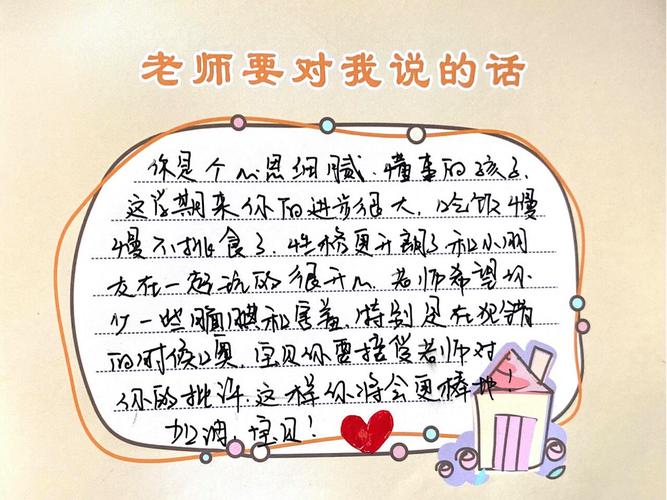 老师要对我说的话
你是个心思细腻、懂事的孩子,
这学期来你的进步很大,吃饭慢
慢不挑食了,性格更开朗了和小朋
友在一起玩的很开心。老师希望你
少一些腼腆和害羞,特别是在犯错
的时候噢,宝贝你要接受老师对
你的批评,这样你将会更棒地!
加油,宝贝!